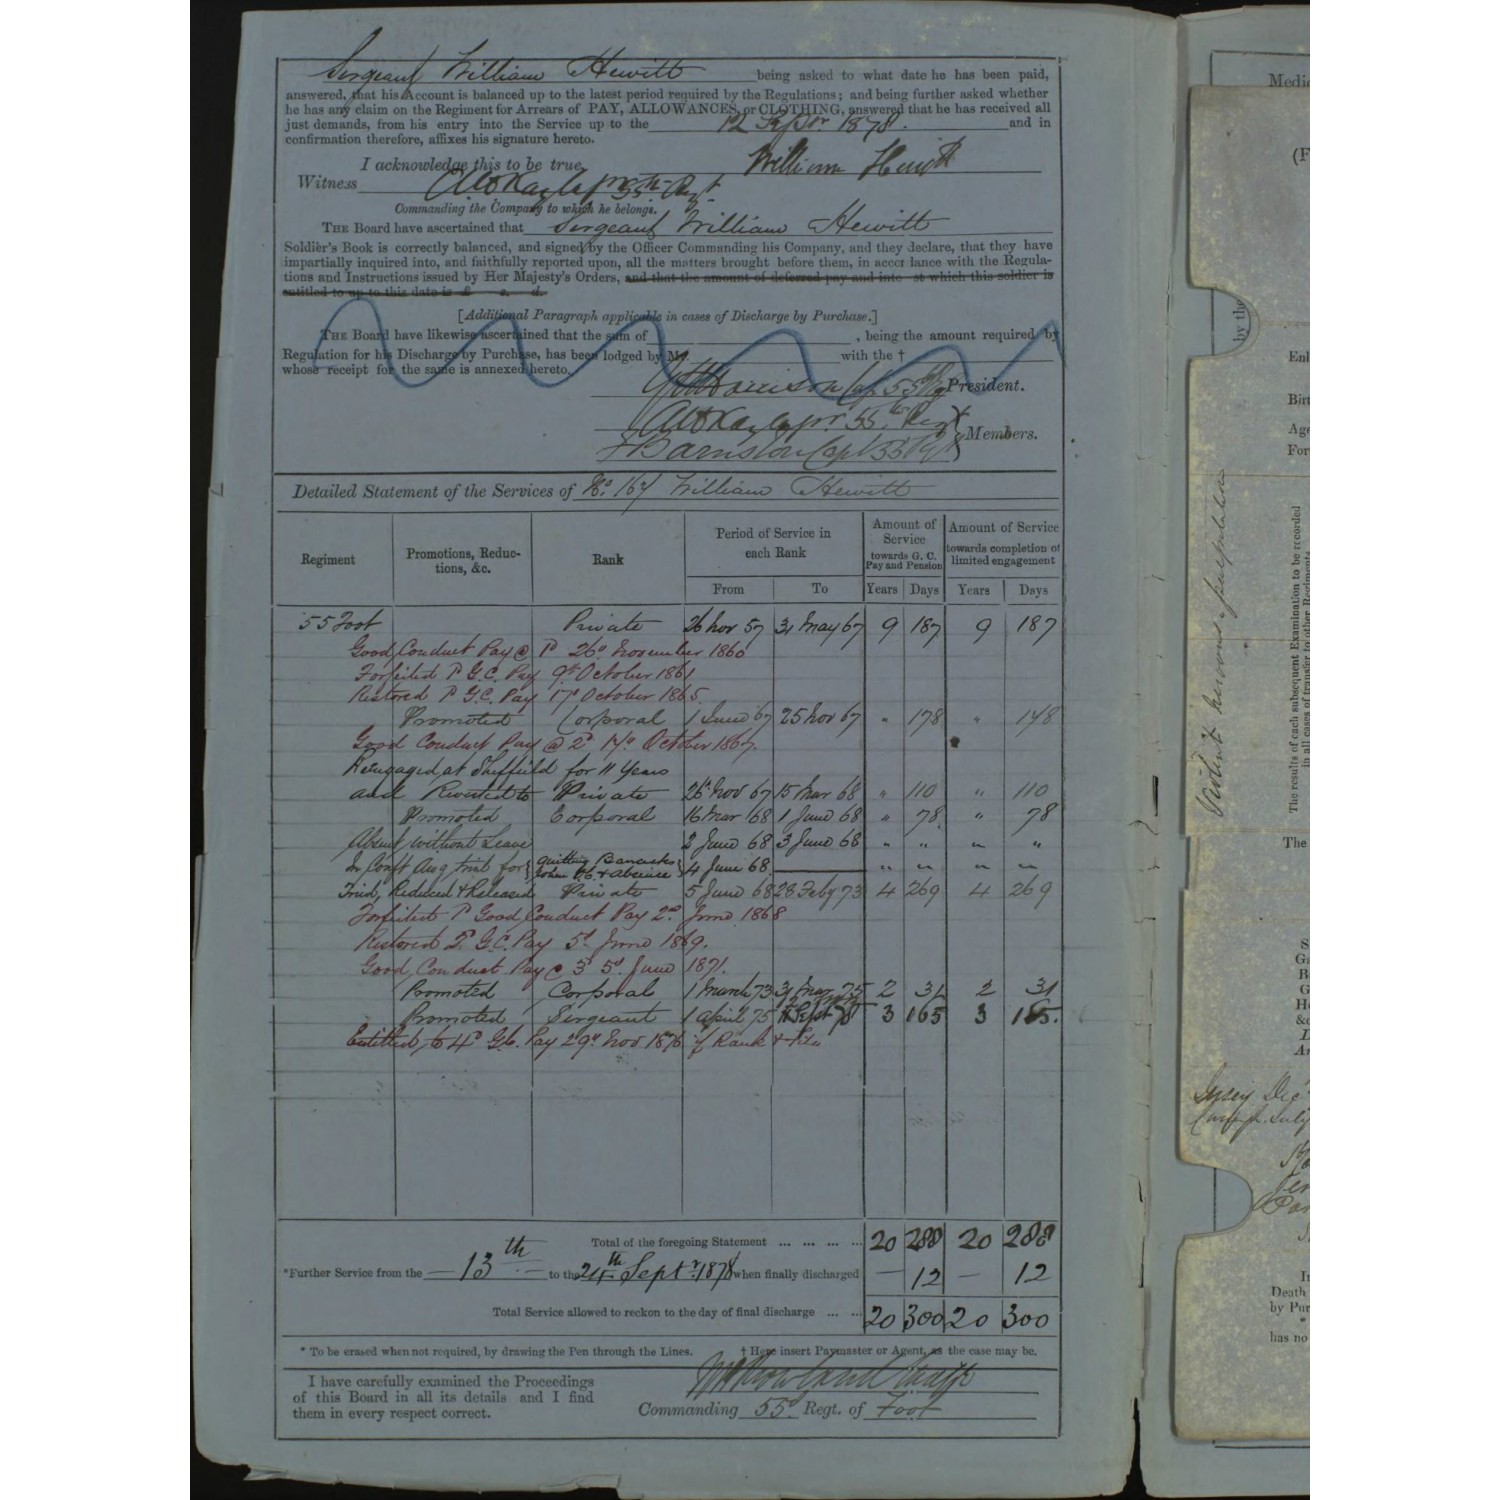 Sergeant William Hewitt being asked to what date he has been paid,
answered, that his Account is balanced up to the latest period required by the Regulations; and being further asked whether
he has any claim on the Regiment for Arrears of PAY, ALLOWANCES, or CLOTHING, answered that he has received all
just demands, from his entry into the Service up to the 12 Septr. 1878. and in
confirmation therefore, affixes his signature hereto.
I acknowledge this to be true, William Hewitt
Witness 55th Regt
Commanding the Company to which he belongs.
THE Board have ascertained that Sergeant William Hewitt
Soldier's Book is correctly balanced, and signed by the Officer Commanding his Company, and they declare, that they have
impartially inquired into, and faithfully reported upon, all the matters brought before them, in accor lance with the Regula-
tions and Instructions issued by Her Majesty's Orders, and that the amount of deferred pay and inte st which this soldier is
entitled to up to this date is £ s. d.
[Additional Paragraph applicable in cases of Discharge by Purchase.]
THE Board have likewise ascertained that the sum of , being the amount required by
Regulation for his Discharge by Purchase, has been lodged by M with the †
whose receipt for the same is annexed hereto.
Harrison Cap 55 Rg President.
55th Regt
Members.
Barnston Capt 55 Rgt
Detailed Statement of the Services of No. 167 William Hewitt
Regiment Promotions, Reduc-tions, &c. Rank Period of Service in each Rank Amount of Service towards G. C. Pay and Pension Amount of Service towards completion of limited engagement
From To Years Days Years Days
55 Foot Private 26 Nov 57 31 May 67 9 187 9 187
Good Conduct Pay @ 1d 26th November 1860
Forfeited 1d G.C. Pay 9th October 1861
Restored 1d G.C. Pay 17th October 1865.
Promoted Corporal 1 June 67 25 Nov 67 " 178 " 148
Good Conduct Pay @ 2d 17th October 1867.
Reengaged at Sheffield for 11 Years
and Reverted to Private 26 Nov 67 15 Mar 68 " 110 " 110
Promoted Corporal 16 Mar 68 1 June 68 " 78 " 78
Absent without Leave 2 June 68 3 June 68 " " " "
In Conft Awg trial for quitting Barracks & absence 4 June 68 " " " "
Tried, Reduced & Released Private 5 June 68 28 Feby 73 4 269 4 269
Forfeited 1d Good Conduct Pay 2nd June 1868
Restored 2d G.C. Pay 5th June 1869.
Good Conduct Pay @ 3d 5th June 1871.
Promoted Corporal 1 March 73 31 Mar 75 2 31 2 31
Promoted Sergeant 1 April 75 12 Sept 78 3 165 3 165.
Entitled to 4d G.C. Pay 29th Nov 1876 if Rank & File
Total of the foregoing Statement ... ... ... ... 20 288 20 288
*Further Service from the 13th to the 24th Septr. 1878 when finally discharged — 12 — 12
Total Service allowed to reckon to the day of final discharge ... ... 20 300 20 300
* To be erased when not required, by drawing the Pen through the Lines. † Here insert Paymaster or Agent, as the case may be.
I have carefully examined the Proceedings
of this Board in all its details and I find
them in every respect correct.
Commanding 55th. Regt. of Foot
Medic
(F
by the
Enl
Birt
Age
For
The results of each subsequent Examination to be recorded
in all cases of transfer to other Regiments
Violent nervous palpitation
The
Death
by Pur
has no